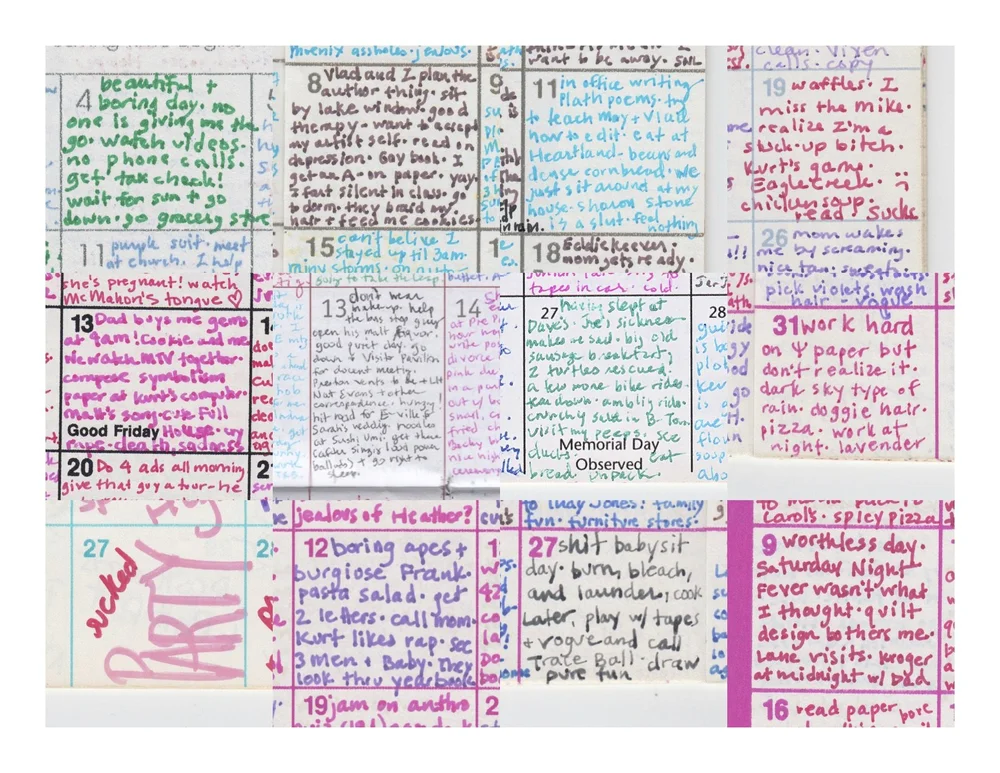 4 beautiful +
boring day. no
one is giving me the
go. watch videos.
no phone calls.
get tax check!
wait for sun + go
down. go grocery store
11 purple suit. meet
at church. I help
phoenix assholes. jealous.
8 Vlad and I plan the
author thing. sit
by lake window. good
therapy. want to accept
my artist self. read on
depression. Gay book. I
get an A- on paper. yay.
I fart silent in class. go
to derm. they braid my
hair + feed me cookies.
15 can't belive I
stayed up til 3am.
9
want to be away. SNL
11 in office writing
Plath poems. try
to teach May + Vlad
how to edit. eat at
Heartland. beans and
dense cornbread. We
just sit around at my
house. sharon stone
is a slut. feel nothing
18 Eddie keever;
mom gets ready.
clean. Vixen
calls. copy
19 waffles. I
miss the mike.
realize I'm a
stuck-up bitch.
Kurt's game.
Eaglecreek.
chicken soup.
read. Sucks
26 mom wakes
me by screaming.
she's pregnant! watch
McMahon's tongue ♡
13 Dad buys me gems
at 9am! Cookie and me
We watch MTV together.
compose symbolism
paper at Kurt's computer.
Matt's song-cuse Full
Good Friday House. ivy
rape-death, sadness
20 Do 4 ads all morning
give that guy a tour-he
13 don't wear
make-up. help
the bus stop guy
open his malt liquor.
good punit day. go
down + Visit Pavilion
for docent meeting.
Preston wants to be + Lit
Nut Evans + other
correspondence. hungry!
hit road for E-ville &
Sarah's wedding. noodles
at Sushi Umi. get there
(after singing loud power
ballads) + go right to
sleep.
14
tapes in car. cold.
27 having slept at
Dave's. Joe's sickness
makes me sad. big old
sausage breakfast,
2 turtles rescued.
a few more bike rides.
tea down. ambly ride.
crunchy subs in B. Town
visit my peeps. see
ducks. eat
Memorial Day
Observed
bread. unpack.
28
pick violets. wash
hair - vogue
31 work hard
on Ψ paper but
don't realize it.
dark sky type of
rain. doggie hair.
pizza. work at
night. lavender
27
PARTY
jealous of Heather?
12 boring apes +
burgiose Frank.
pasta salad. get
2 letters. call mom.
Kurt likes rap. see
3 men + Baby. They
look thru yearbook
19 jam on anthro
to Indy Jones! family
fun. furniture stores.
27 shit babysit
day. burn, bleach,
and launder, cook
Later, play w/ tapes
+ vogue and call
Trace Ball. draw
pure fun
Carol's. spicy pizza
9 worthless day.
Saturday Night
Fever wasn't what
I thought. quilt
design bothers me.
Lane visits. kroger
at midnight w/ Dad
16 read paper bore